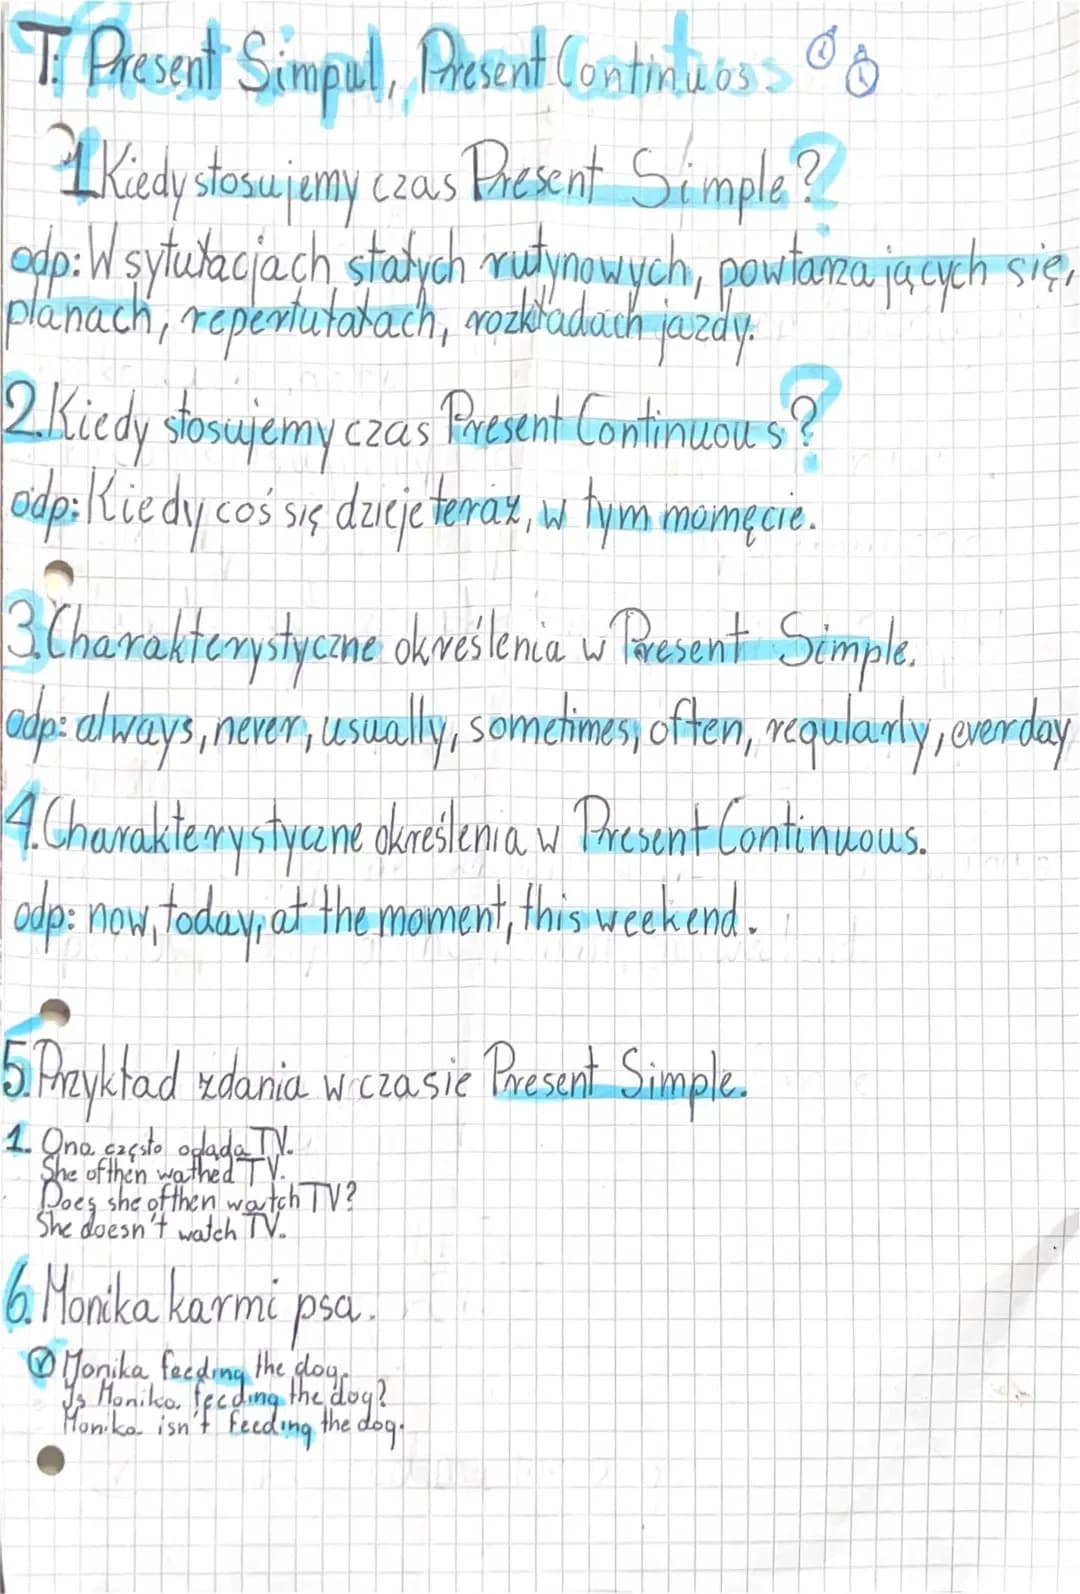 T: Present Simpul, Present Continuoss
1. Kiedy stosujemy czas Present Simple?
odp: W sytułacjach stałych rutynowych, powtarzających się,
planach, repertułałach, rozkładach jazdy.
2. Kiedy stosujemy czas Present Continuous?
odp: Kiedy coś się dzieje teraz, w tym momęcie.
3. Charakterystyczne określenia w Present Simple.
odp: always, never, usually, sometimes, often, regularly, everday
4. Charakterystyczne określenia w Present Continuous.
odp: now, today, at the moment, this weekend.
5. Przykład zdania w czasie Present Simple.
1. Ona często oglada TV.
She ofthen wathed TV.
Does she ofthen watch TV?
She doesn't watch TV.
6. Monika karmi psa.
Monika feeding the dog.
Is Monika feeding the dog?
Monika isn't feeding the dog.